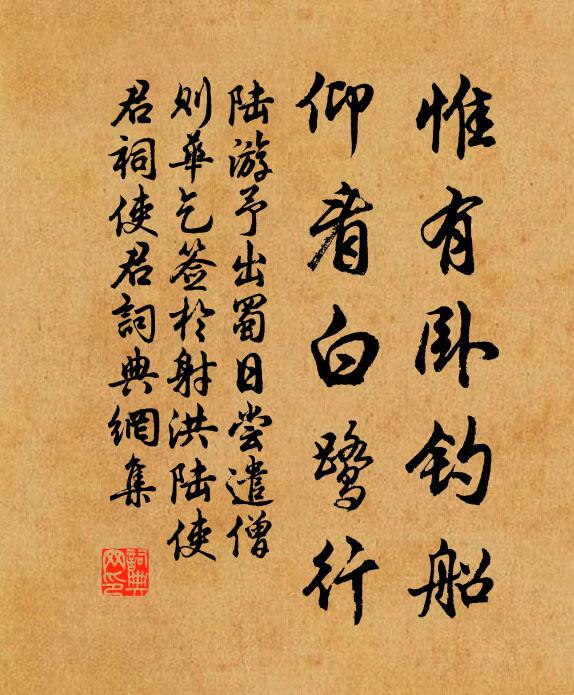 惟有卧钓船
仰看白鹭行
陆游予出蜀日尝遣僧
则华乞签於射洪陆使
君祠使君词典網集
詞典网印